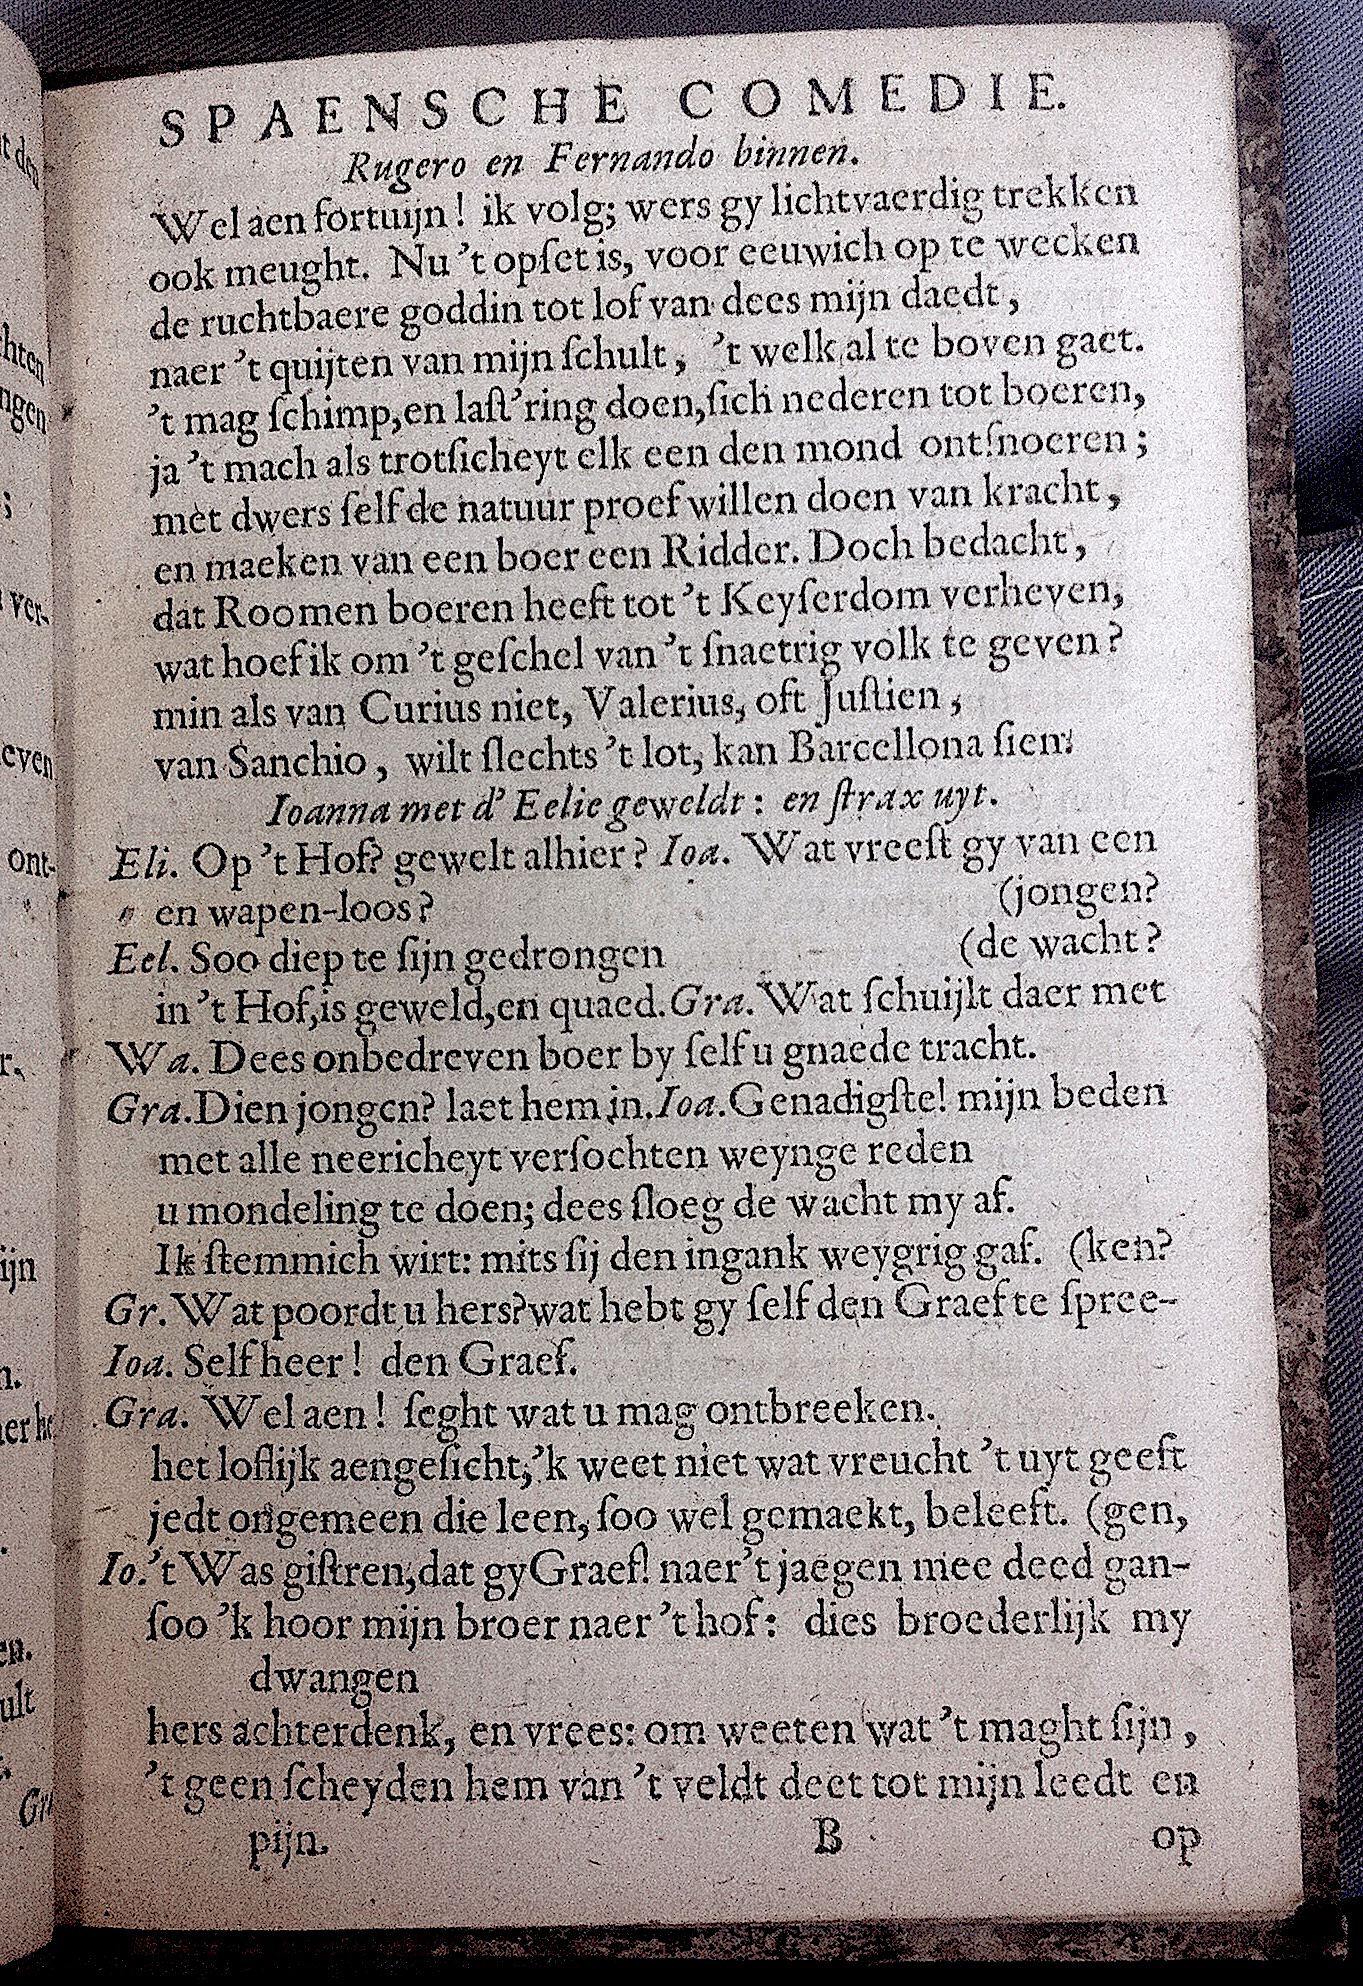 SPAENSCHE COMEDIE.
Rugero en Fernando binnen.
Wel aen fortuijn! ik volg; wers gy lichtvaerdig trekken
ook meught. Nu 't opſet is, voor eeuwich op te wecken
de ruchtbaere goddin tot lof van dees mijn daedt,
naer 't quijten van mijn ſchult, 't welk al te boven gaet.
't mag ſchimp, en laſt'ring doen, ſich nederen tot boeren,
ja 't mach als trotſicheyt elk een den mond ontſnoeren;
met dwers ſelf de natuur proef willen doen van kracht,
en maeken van een boer een Ridder. Doch bedacht,
dat Roomen boeren heeft tot 't Keyſerdom verheven,
wat hoef ik om 't geſchel van 't ſnaetrig volk te geven?
min als van Curius niet, Valerius, oft Juſtien,
van Sanchio, wilt ſlechts 't lot, kan Barcellona ſien.
Ioanna met d' Eelie geweldt: en ſtrax uyt.
Eli. Op 't Hof? gewelt alhier? Ioa. Wat vreeſt gy van een
" en wapen-loos? (jongen?
Eel. Soo diep te ſijn gedrongen (de wacht?
in 't Hof, is geweld, en quaed. Gra. Wat ſchuijlt daer met
Wa. Dees onbedreven boer by ſelf u gnaede tracht.
Gra. Dien jongen? laet hem in. Ioa. Genadigſte! mijn beden
met alle neericheyt verſochten weynge reden
u mondeling te doen; dees ſloeg de wacht my af.
Ik ſtemmich wirt: mits ſij den ingank weygrig gaf. (ken?
Gr. Wat poordt u hers? wat hebt gy ſelf den Graef te ſpree-
Ioa. Self heer! den Graef.
Gra. Wel aen! ſeght wat u mag ontbreeken.
het loflijk aengeſicht, 'k weet niet wat vreucht 't uyt geeft
jedt ongemeen die leen, ſoo wel gemaekt, beleeft. (gen,
Io. 't Was giſtren, dat gy Graef! naer 't jaegen mee deed gan-
ſoo 'k hoor mijn broer naer 't hof: dies broederlijk my
dwangen
hers achterdenk, en vrees: om weeten wat 't maght ſijn,
't geen ſcheyden hem van 't veldt deet tot mijn leedt en
pijn. B op